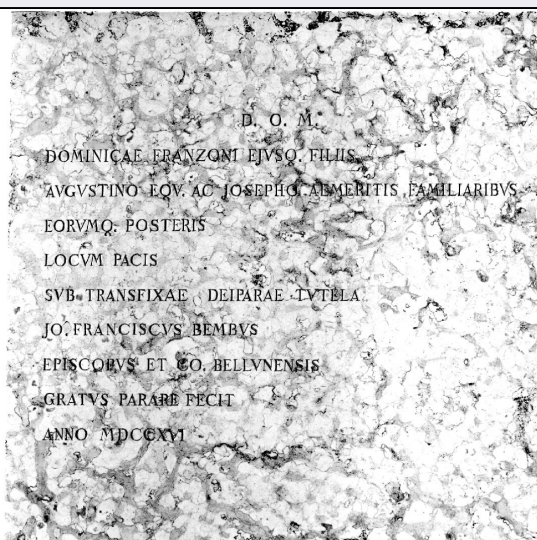 D. O. M.
DOMINICAE FRANZONI EJVSQ. FILIIS
AVGVSTINO EQV. AC JOSEPHO AEMERITIS FAMILIARIBVS
EORVMQ. POSTERIS
LOCVM PACIS
SVB TRANSFIXAE DEIPARAE TVTELA
JO. FRANCISCVS BEMBVS
EPISCOPVS ET CO. BELLVNENSIS
GRATVS PARARE FECIT
ANNO MDCCXVI